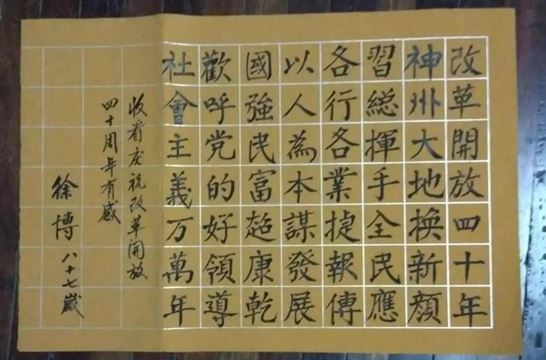 改革開放四十年
神州大地换新顔
習総揮手全民應
各行各業捷報傳
以人為本謀發展
國強民富超康乾
歡呼党的好領導
社會主義万萬年
收看庆祝改革開放
四十周年有感
徐博八十七歲